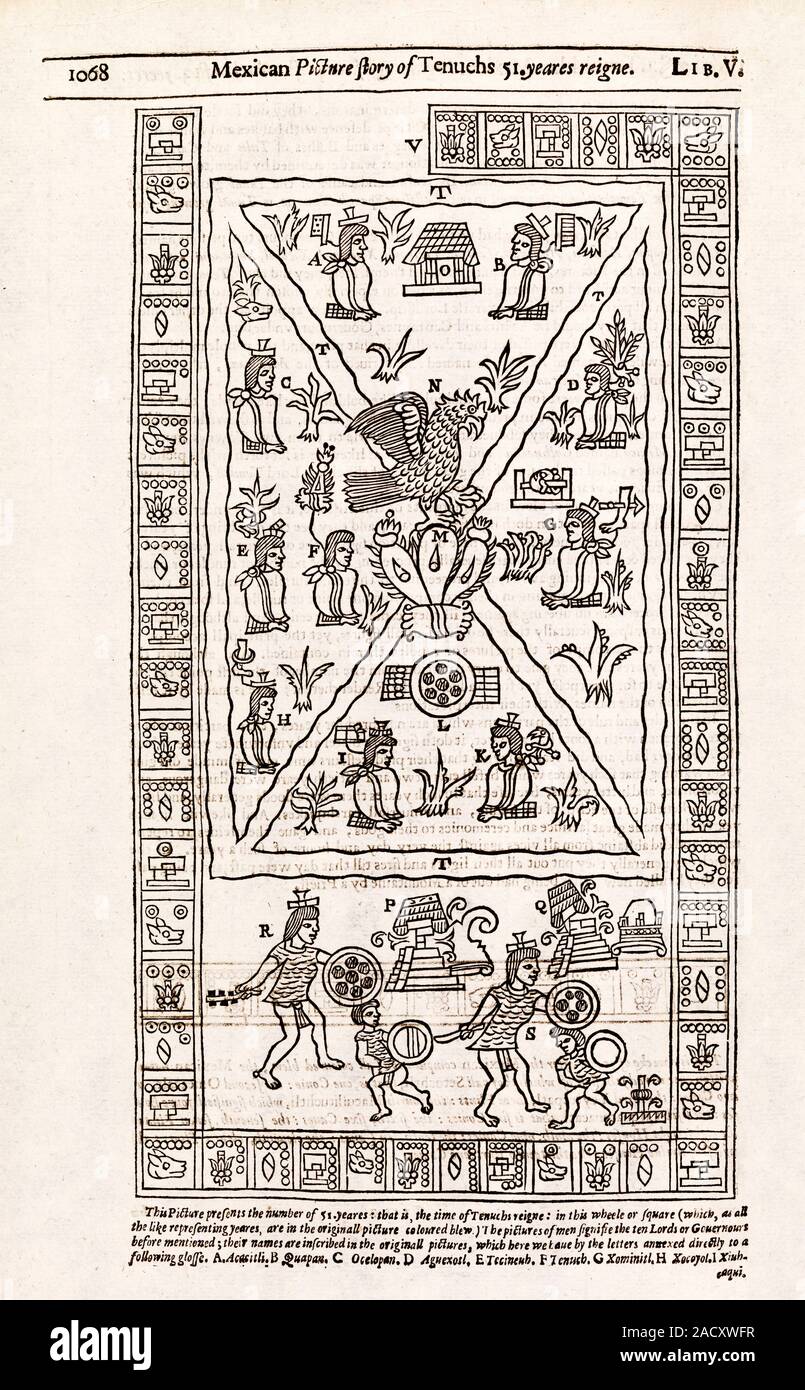 1068 Mexican Picture ſtory of Tenuchs 51.yeares reigne. LIB. V.
V
T
A B
T
T
C N D
M
E F G
H
L
I K
T
P Q
R
S
This Picture preſents the number of 51. yeares: that is, the time of Tenuchs reigne: in this wheele or ſquare (which, as all
the like repreſenting yeares, are in the originall picture coloured blew.) The pictures of men ſignifie the ten Lords or Gouernours
before mentioned; their names are inſcribed in the originall pictures, which here we haue by the letters annexed directly to a
following gloſſe. A. Acacitli. B Quapan. C Ocelopan. D Aguexotl. E Tecineuh. F Tenuch. G Xominitl. H Xocoyol. I Xiuh-
caqui.
alamy
Image ID: 2ACXWFR
www.alamy.com